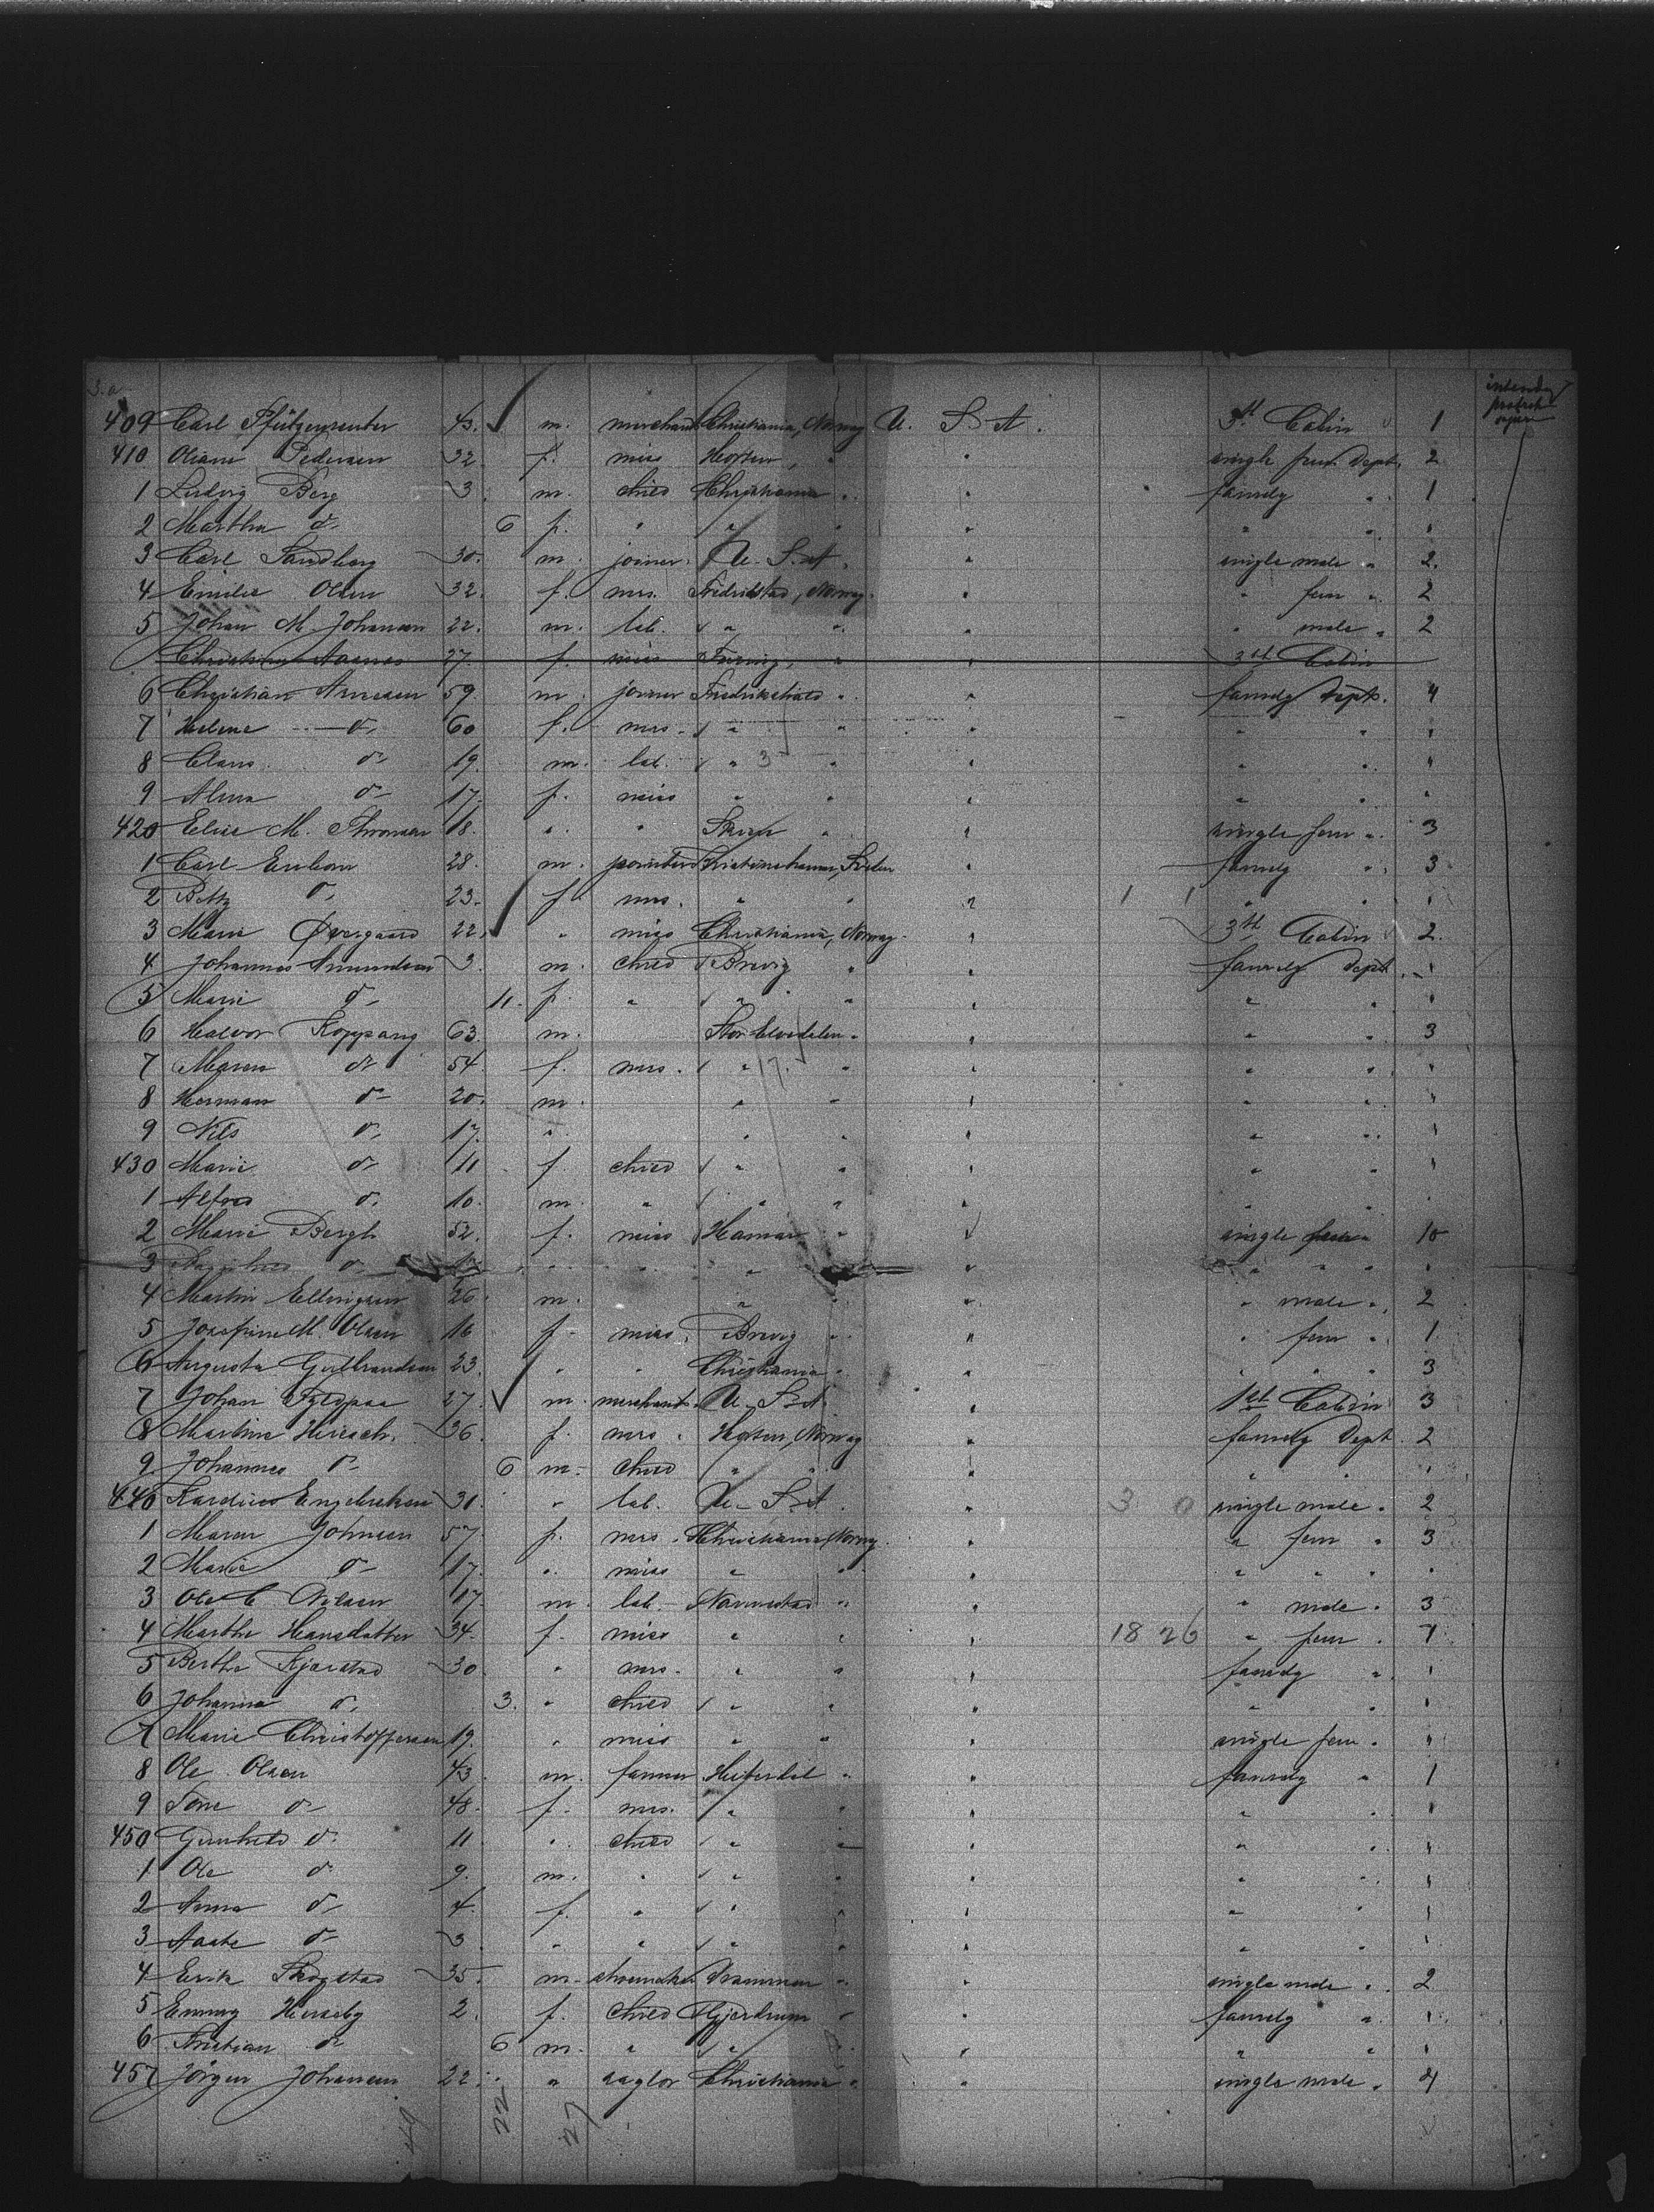 3.a.
intending protrch ojorn
409 Carl Pfützenreuter 43. m. merchant Christiania, Norway U. S. A. 3th Cabin 1
410 Oliane Pedersen 32. f. miss Horten, " " single fem Dept. 2
1 Ludvig Berg 3. m. child Christiania " " family " 1
2 Martha do 6 f. " " " " " " "
3 Carl Sandberg 30. m. joiner U. S. A. " single male " 2.
4 Emilie Olsen 32. f. mrs. Fredrikstad, Norway. " " fem " 2
5 Johan M. Johansen 22. m. lab. " " " " male " 2
Christine Aasnes 27. f. miss " " 3th Cabin
6 Christian Arnesen 59. m. joiner Fredrikshald " " family Dept. 4
7 Helene do 60 f. mrs. " " " " " "
8 Claus do 19. m. lab. " 3 " " " " "
9 Alma do 17. f. miss " " " " " "
420 Elise M. Thronsen 18. " " Skien " " single fem " 3
1 Carl Enbom 28. m. painter Kristinehamn, " family " 3
2 Betty do 23. f mrs. " " " 1 1 " " "
3 Marie Øvergaard 22. " miss Christiania, Norway. " 3th Cabin 2.
4 Johannes Amundsen 3. m. child Brevig " " family Dept. 1
5 Marie do 11. f. " " " " " " "
6 Halvor Koppang 63. m. Stor Elvedalen " " " " 3
7 Maren do 54 f. mrs. " 17. " " " " "
8 Herman do 20. m. " " " " " "
9 Nils do 17. " " " " " " "
430 Marie do 11 f. child " " " " " "
1 Alfred do 10. m. " " " " " " "
2 Marie Bergh 52. f. miss Hamar " " single fem " 10
3 do " " " " " " " "
4 Martin Ellingsen 26 m. " " " " male " 2
5 Josefine M. Olsen 16 f. miss. Brevig " " " fem " 1
6 Augusta Gulbrandsen 23. " " Christiania " " " " " 3
7 Johan 27. m. merchant. U. S. A. " 1st Cabin 3
8 Martine Hirsch. 36. f. mrs. Horten, Norway " family Dept. 2
9 Johannes do 6 m. child " " " " " "
440 Engebretsen 30. " lab. U. S. A. " 3 0 single male " 2
1 Maren Johnsen 57. f. mrs. Christiania, Norway. " " fem " 3
2 Marie do 17. " miss " " " " " " "
3 Ole C. Nilsen 17. m. lab. Nannestad " " " male " 3
4 Marthe Hansdatter 34. f. miss " " " 18 26 " fem " 7
5 Berthe Kjærstad 30 " mrs. " " " family " "
6 Johanna do 3. " child " " " " " "
7 Marie Christoffersen 19. " miss " " " single fem " "
8 Ole Olsen 43 m. farmer Hiterdal " " family " 1
9 Tone do 48. f. mrs. " " " " " "
450 Gunhild do 11 " child " " " " " "
1 Ole do 9. m. " " " " " " "
2 Anna do 4. f. " " " " " " "
3 Aaste do 3 " " " " " " " "
4 Erik Skogstad 35. m. shoemaker Drammen " " single male " 2
5 Emmy Hexeby 2. f. child Gjerdrum " " family " 1
6 Kristian do 6 m. " " " " " " "
457 Jörgen Johansen 22. " saylor Christiania " " single male " 4
49 22 27